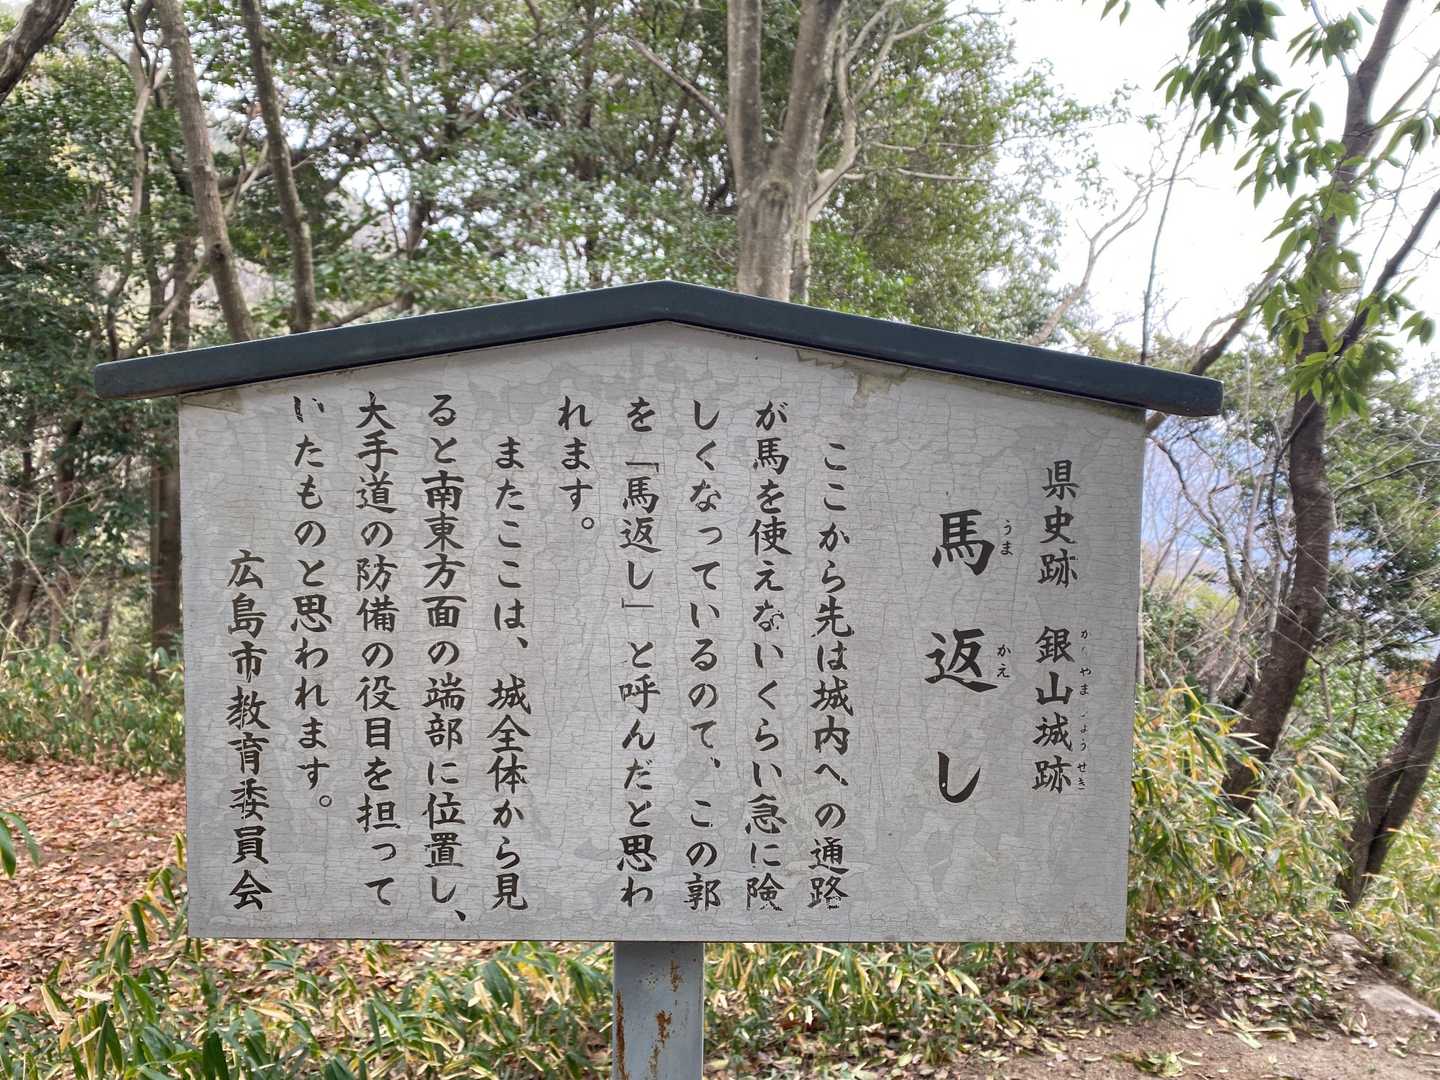 県史跡 銀山城跡
かなやまじょうせき
馬返し
うま かえ
ここから先は城内への通路
が馬を使えないくらい急に険
しくなっているので、この郭
を「馬返し」と呼んだと思わ
れます。
またここは、城全体から見
ると南東方面の端部に位置し、
大手道の防備の役目を担って
いたものと思われます。
広島市教育委員会